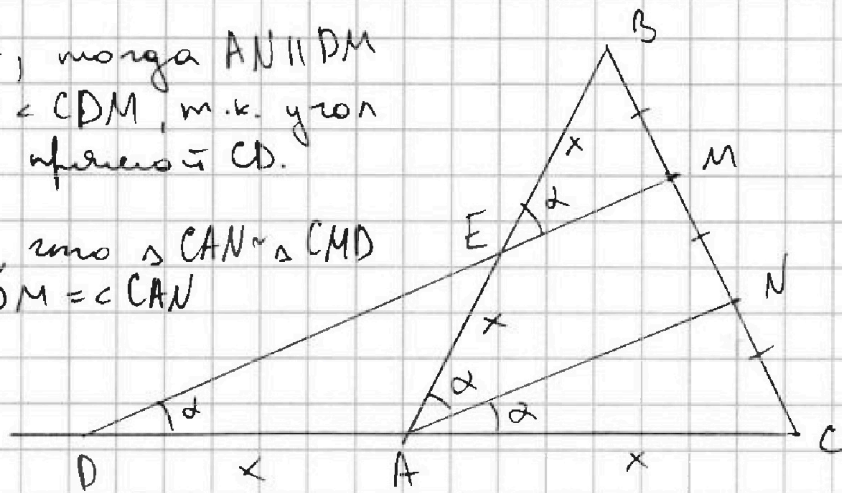 , тогда AN || DM
< CDM, т.к. угол
прямой CD.
что △ CAN ~ △ CMD
DM = < CAN
B
x
M
α
E
N
x
α
α
α
D
x
A
x
C